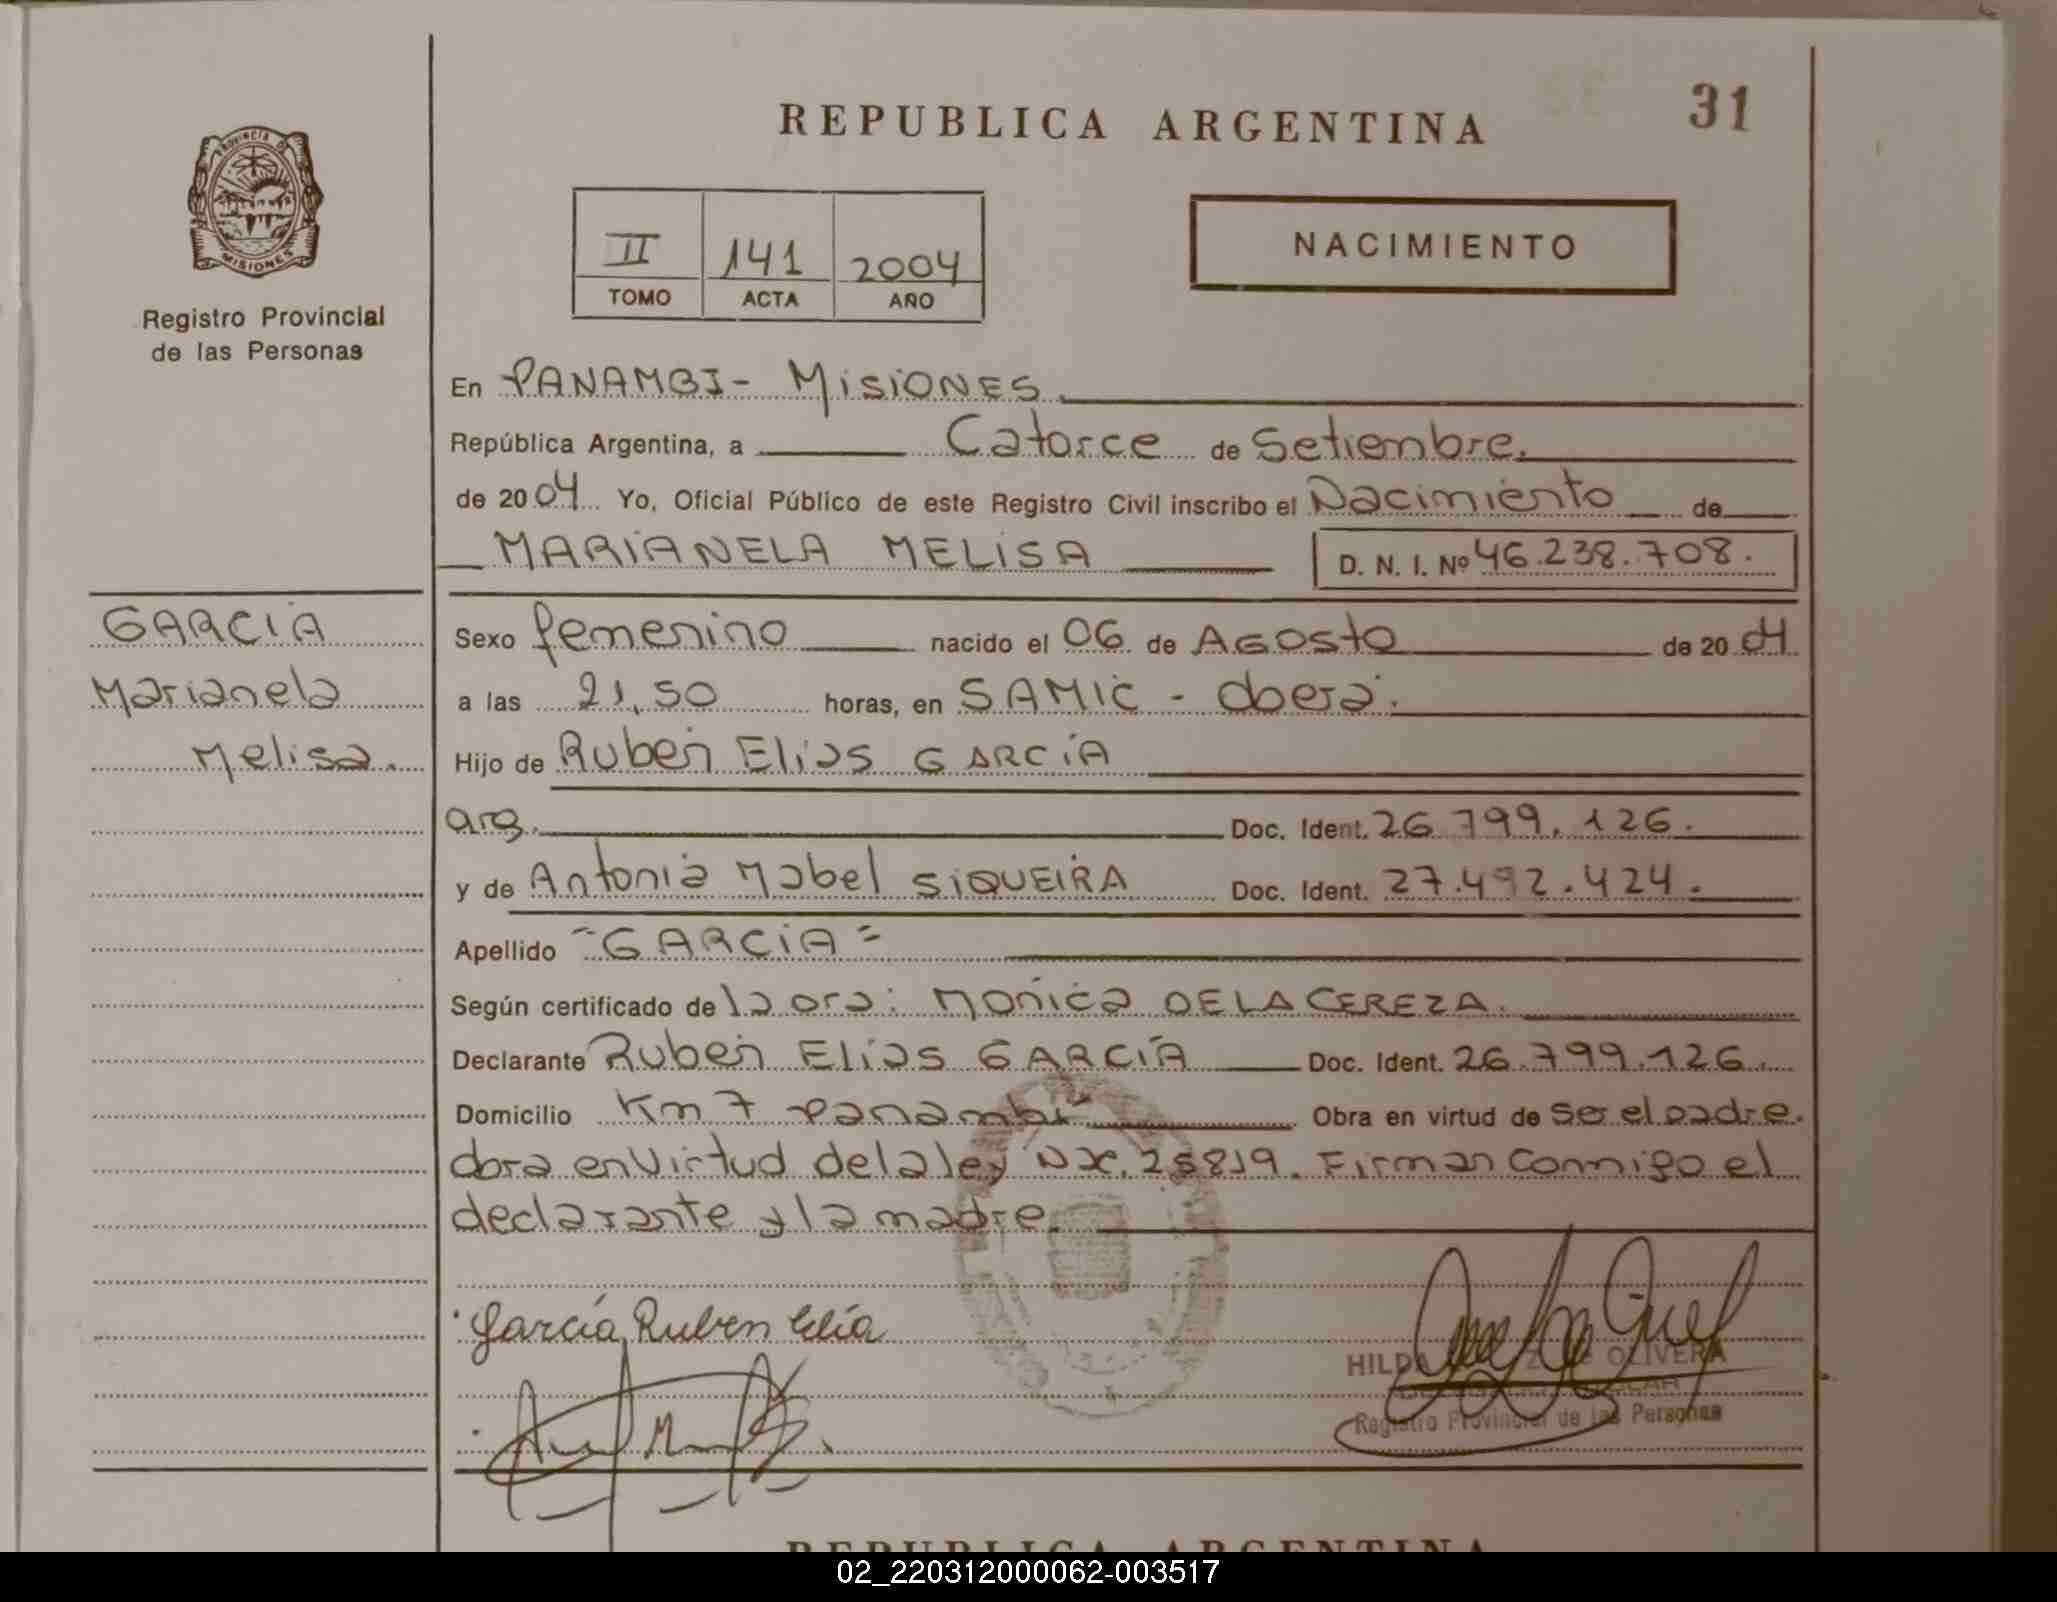 REPUBLICA ARGENTINA
31
PROVINCIA DE
MISIONES
Registro Provincial
de las Personas
II 141 2004
TOMO ACTA AÑO
NACIMIENTO
En PANAMBI - MISIONES
República Argentina, a Catorce de Setiembre.
de 2004 Yo, Oficial Público de este Registro Civil inscribo el Nacimiento de
MARIANELA MELISA D. N. I. Nº 46.238.708.
GARCIA
Marianela
Melisa.
Sexo femenino nacido el 06 de AGOSTO de 2004
a las 21,50 horas, en SAMIC - Oberá.
Hijo de Ruben Elias GARCÍA
arg. Doc. Ident. 26.799.126.
y de Antonia Mabel SIQUEIRA Doc. Ident. 27.492.424.
Apellido "GARCIA"
Según certificado de la Dra: MONICA DE LA CEREZA.
Declarante Ruben Elias GARCIA Doc. Ident. 26.799.126.
Domicilio Km 7 Panambí Obra en virtud de ser el padre.
dora en virtud de la ley 25819. Firman conmigo el
declarante y la madre.
García, Ruben Elía
HILDA OLIVERA
Registro Provincial de las Personas
REPUBLICA ARGENTINA
02_220312000062-003517